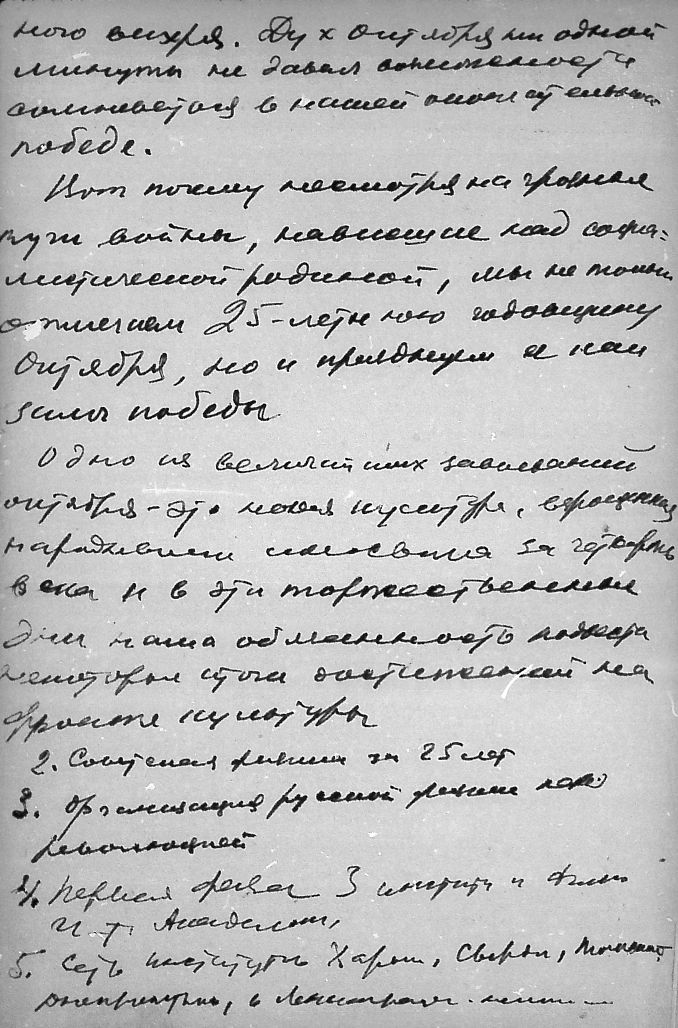 ного вихря. Дух Октября ни одной
минуты не давал возможности
сомневаться в нашей окончательной
победе.
Вот почему несмотря на грозные
тучи войны, нависшие над социа-
листической родиной, мы не только
отмечаем 25-летнюю годовщину
Октября, но и празднуем а как
залог победы
Одно из величайших завоеваний
октября - это новая культура, взрощенная
народными за четверть
века и в эти торжественные
дни наша обязанность подвести
некоторые итоги достижений на
фронте культуры
2. Советская физика за 25 лет
3. Организация русской физики перед
революцией
4. Первая фаза 3 института и
и т. Академии,
5. Сеть институтов Харьк, Сверд, Томск,
Днепропетр, в Ленинграде